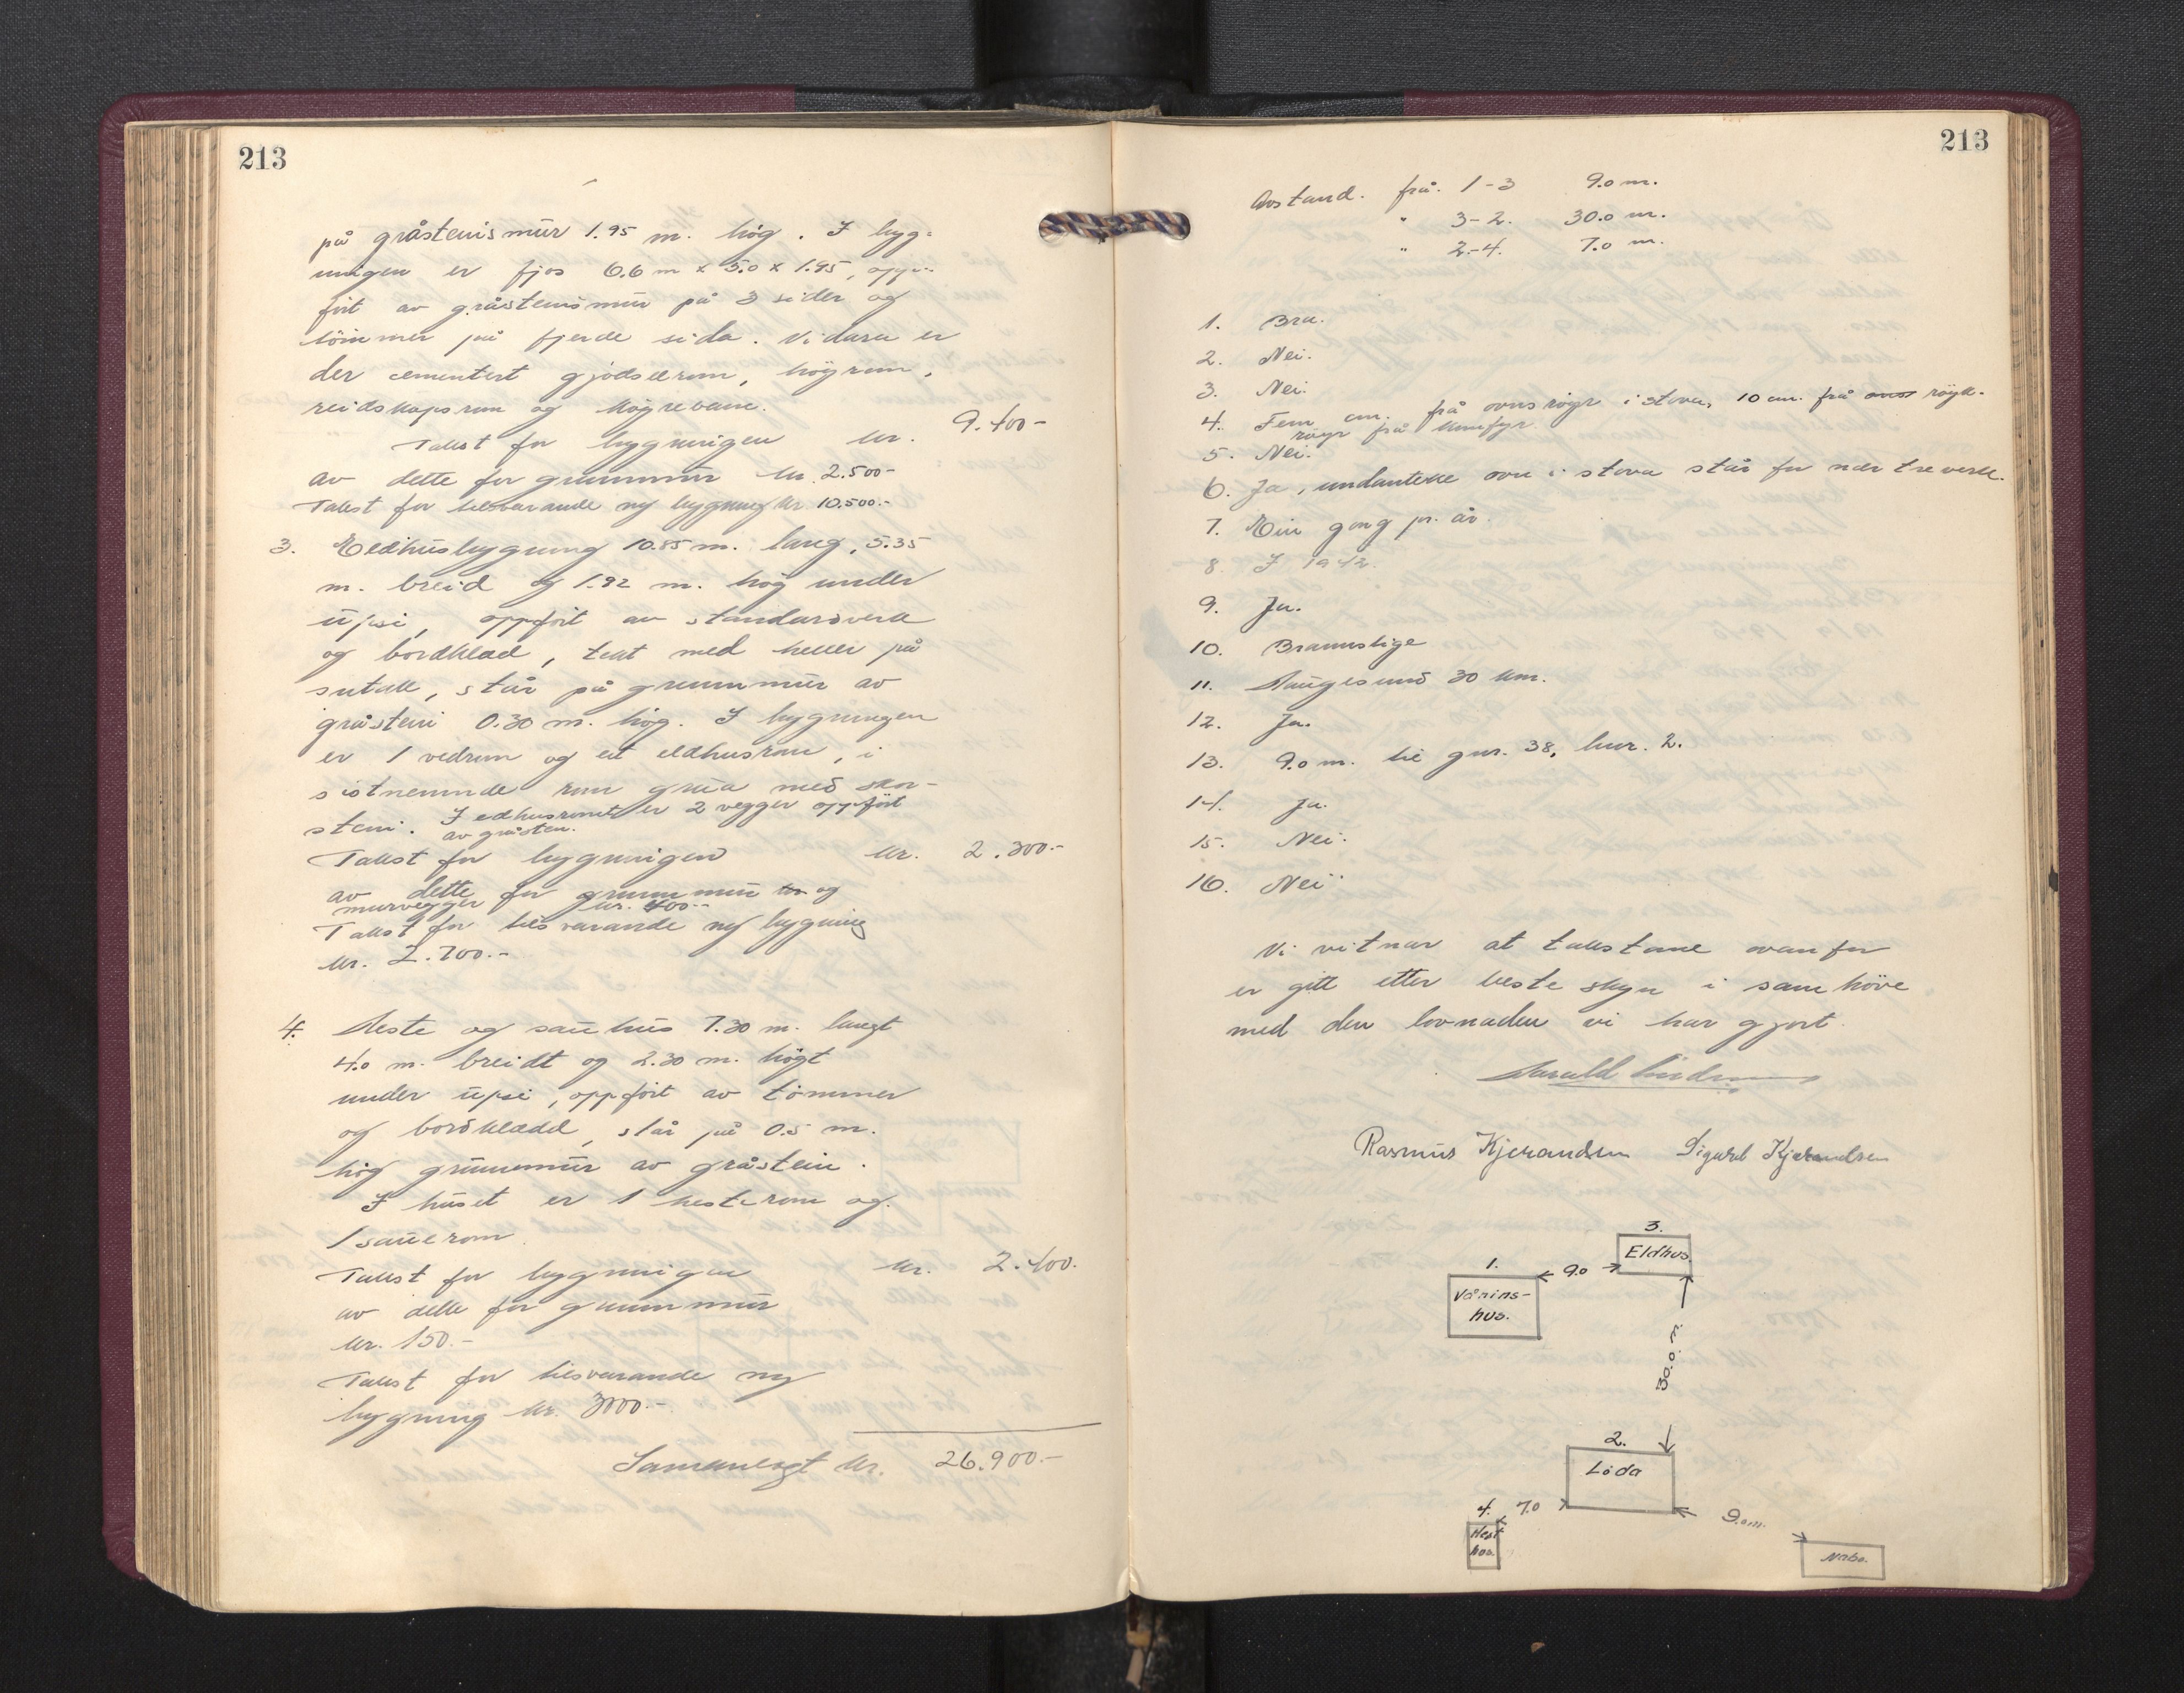 213
på gråsteinsmur 1.95 m. høg. I byg-
ningen er fjøs 6.6 m x 5.0 x 1.95, opp-
ført av gråsteinsmur på 3 sider og
tömmer på fjerde sida. Vidare er
der cementert gjødselrom, höyrom,
reidskapsrom og
Takst for bygningen kr. 9.400-
av dette for grunnmur kr. 2.500-
Takst for tilsvarande ny bygning kr 10.500.-
3. Eldhusbygning 10.85 m. lang, 5.35
m. breid og 1.92 m. høg under
upsi, oppført av standarsverk
og bordklæd, tekt med heller på
sutak, står på grunnmur av
gråstein 0.30 m. høg. I bygningen
er 1 vedrom og eit eldhusrom, i
sistnemnde rom grua med skor-
stein. I eldhusromet er 2 vegger oppført
av gråstein.
Takst for bygningen kr. 2.300.-
av dette for grunnmur og
murvegger kr. 400.-
Takst for tilsvarande ny bygning
kr. 2.700.-
4. Heste og sauhus 7.30 m. langt
4.0 m. breidt og 2.30 m. högt
under upsi, oppført av tömmer
og bordklædd, står på 0.5 m.
høg grunnmur av gråstein.
I huset er 1 hesterom og
1 sauerom.
Takst for bygningen kr. 2.400.
av dette for grunnmur
kr. 150.-
Takst for tilsvarande ny
bygning kr. 3000.-
Samanlagt kr. 26.900.-
213
Avstand. frå. 1-3 9.0 m.
" 3-2. 30.0 m.
" 2-4. 7.0 m.
1. Bra.
2. Nei.
3. Nei.
4. Fem cm. frå ovnsrøyr i stova, 10 cm. frå røyk-
røyr frå komfyr.
5. Nei.
6. Ja, undanteke ovn i stova står for nær treverk.
7. Ein gong pr. år.
8. I 1942.
9. Ja.
10. Brannstige
11. Haugesund 30 km.
12. Ja.
13. 9.0 m. til gnr. 38, bnr. 2.
14. Ja.
15. Nei.
16. Nei
Vi vitnar at takstane ovanfor
er gitt etter beste skyn i samhöve
med den lovnaden vi har gjort.
Harald
Rasmus Kjerandsen Sigurd Kjerandsen
3.
Eldhus.
1.
9.0
Vånins-
hus.
30.0 m.
2.
Löda
4.
7.0
9.0 m.
Hest
hus.
Nabo.